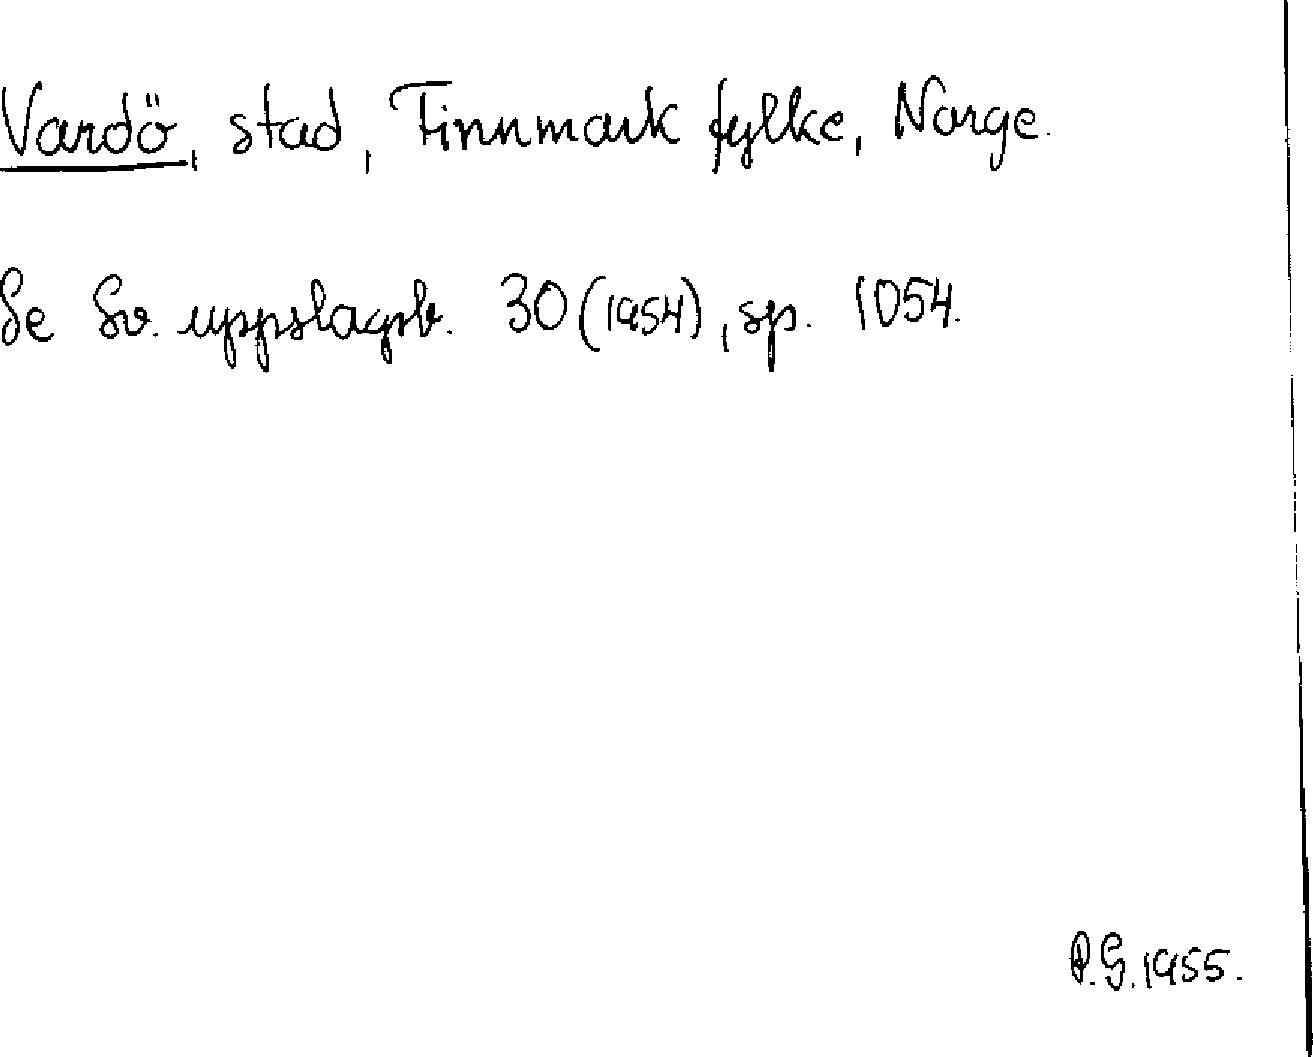 Vardö, stad, Finnmark fylke, Norge.
Se Sv. uppslagsb. 30 (1954), sp. 1054.
P.G. 1955.